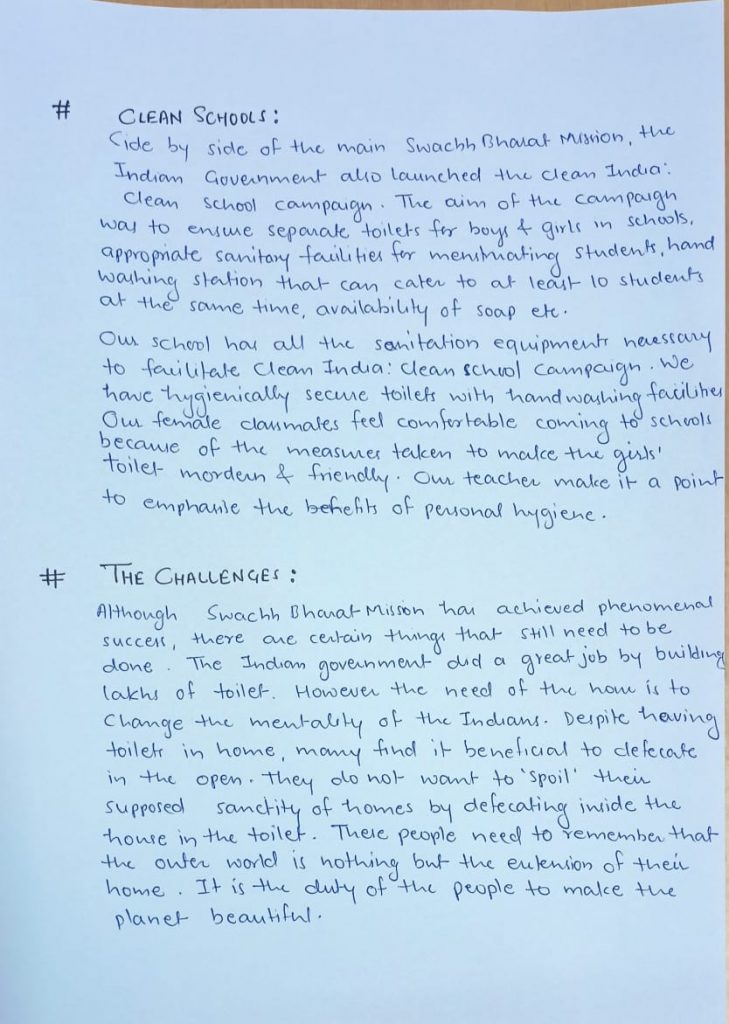 # CLEAN SCHOOLS:
Side by side of the main Swachh Bharat Mission, the
Indian Government also launched the clean India:
Clean school campaign. The aim of the campaign
was to ensure separate toilets for boys & girls in schools,
appropriate sanitary facilities for menstruating students, hand
washing station that can cater to at least 10 students
at the same time, availability of soap etc.
Our school has all the sanitation equipments necessary
to facilitate Clean India: Clean school Campaign. We
have hygienically secure toilets with handwashing facilities
Our female classmates feel comfortable coming to schools
because of the measures taken to make the girls'
toilet mordern & friendly. Our teacher make it a point
to emphasise the benefits of personal hygiene.
# THE CHALLENGES:
Although Swachh Bharat Mission has achieved phenomenal
success, there are certain things that still need to be
done. The Indian government did a great job by building
lakhs of toilet. However the need of the hour is to
Change the mentality of the Indians. Despite having
toilets in home, many find it beneficial to defecate
in the open. They do not want to 'spoil' their
supposed sanctity of homes by defecating inside the
house in the toilet. These people need to remember that
the outer world is nothing but the extension of their
home. It is the duty of the people to make the
planet beautiful.